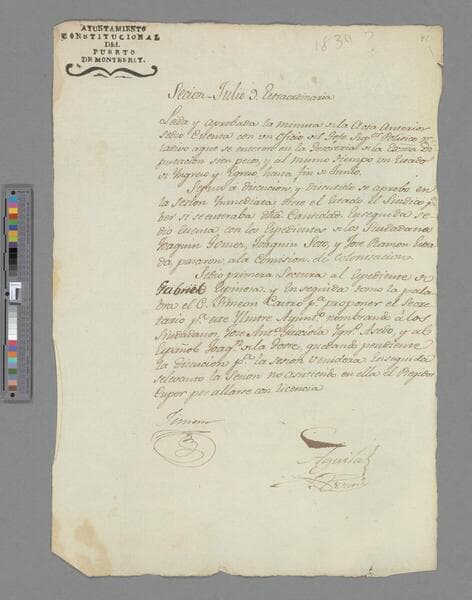 AYUNTAMIENTO
CONSTITUCIONAL
DEL
PUERTO
DE MONTERREY.
1834?
Secion Julio 9. Extraordinaria
Leida y aprobada la minuta de la Acta Anterior
se dio Cuenta con un Oficio del Jefe Supr. Politico re
lativo a que se enteren en la Tesoreria de la Exma Di
putacion pesos, y al mismo tiempo un Estado
de Ingreso y Egreso hasta fin de Junio.
Siguio a discucion, y discutido se aprobo en
la Secion Ynmediata, diese el Estado el Sindico pa.
ber si se enteraba dha Cantidad. Enseguida se
dio Cuenta con los Expedientes de los Ciudadanos
Joaquin Gomez, Joaquin Soto, y Jose Ramon Estra
da pasaron a la Comision de Colonisacion.
Se dio primera Lectura al Expediente de
Gabriel Espinosa, y Enseguida tomo la pala
bra el C. Simeon Castro pa. proponer el Secre
tario pa. este Ilustre Ayunto. nombrando á los
Ciudadanos Jose Anto. Ygno. y al
Español Joaqn. de la Torre, quedando pendiente
la discucion pa. la secion venidera Enseguida
se levanto la Secion no asistiendo en ella el Regidor
Cupor por allarse con licencia
Aguila